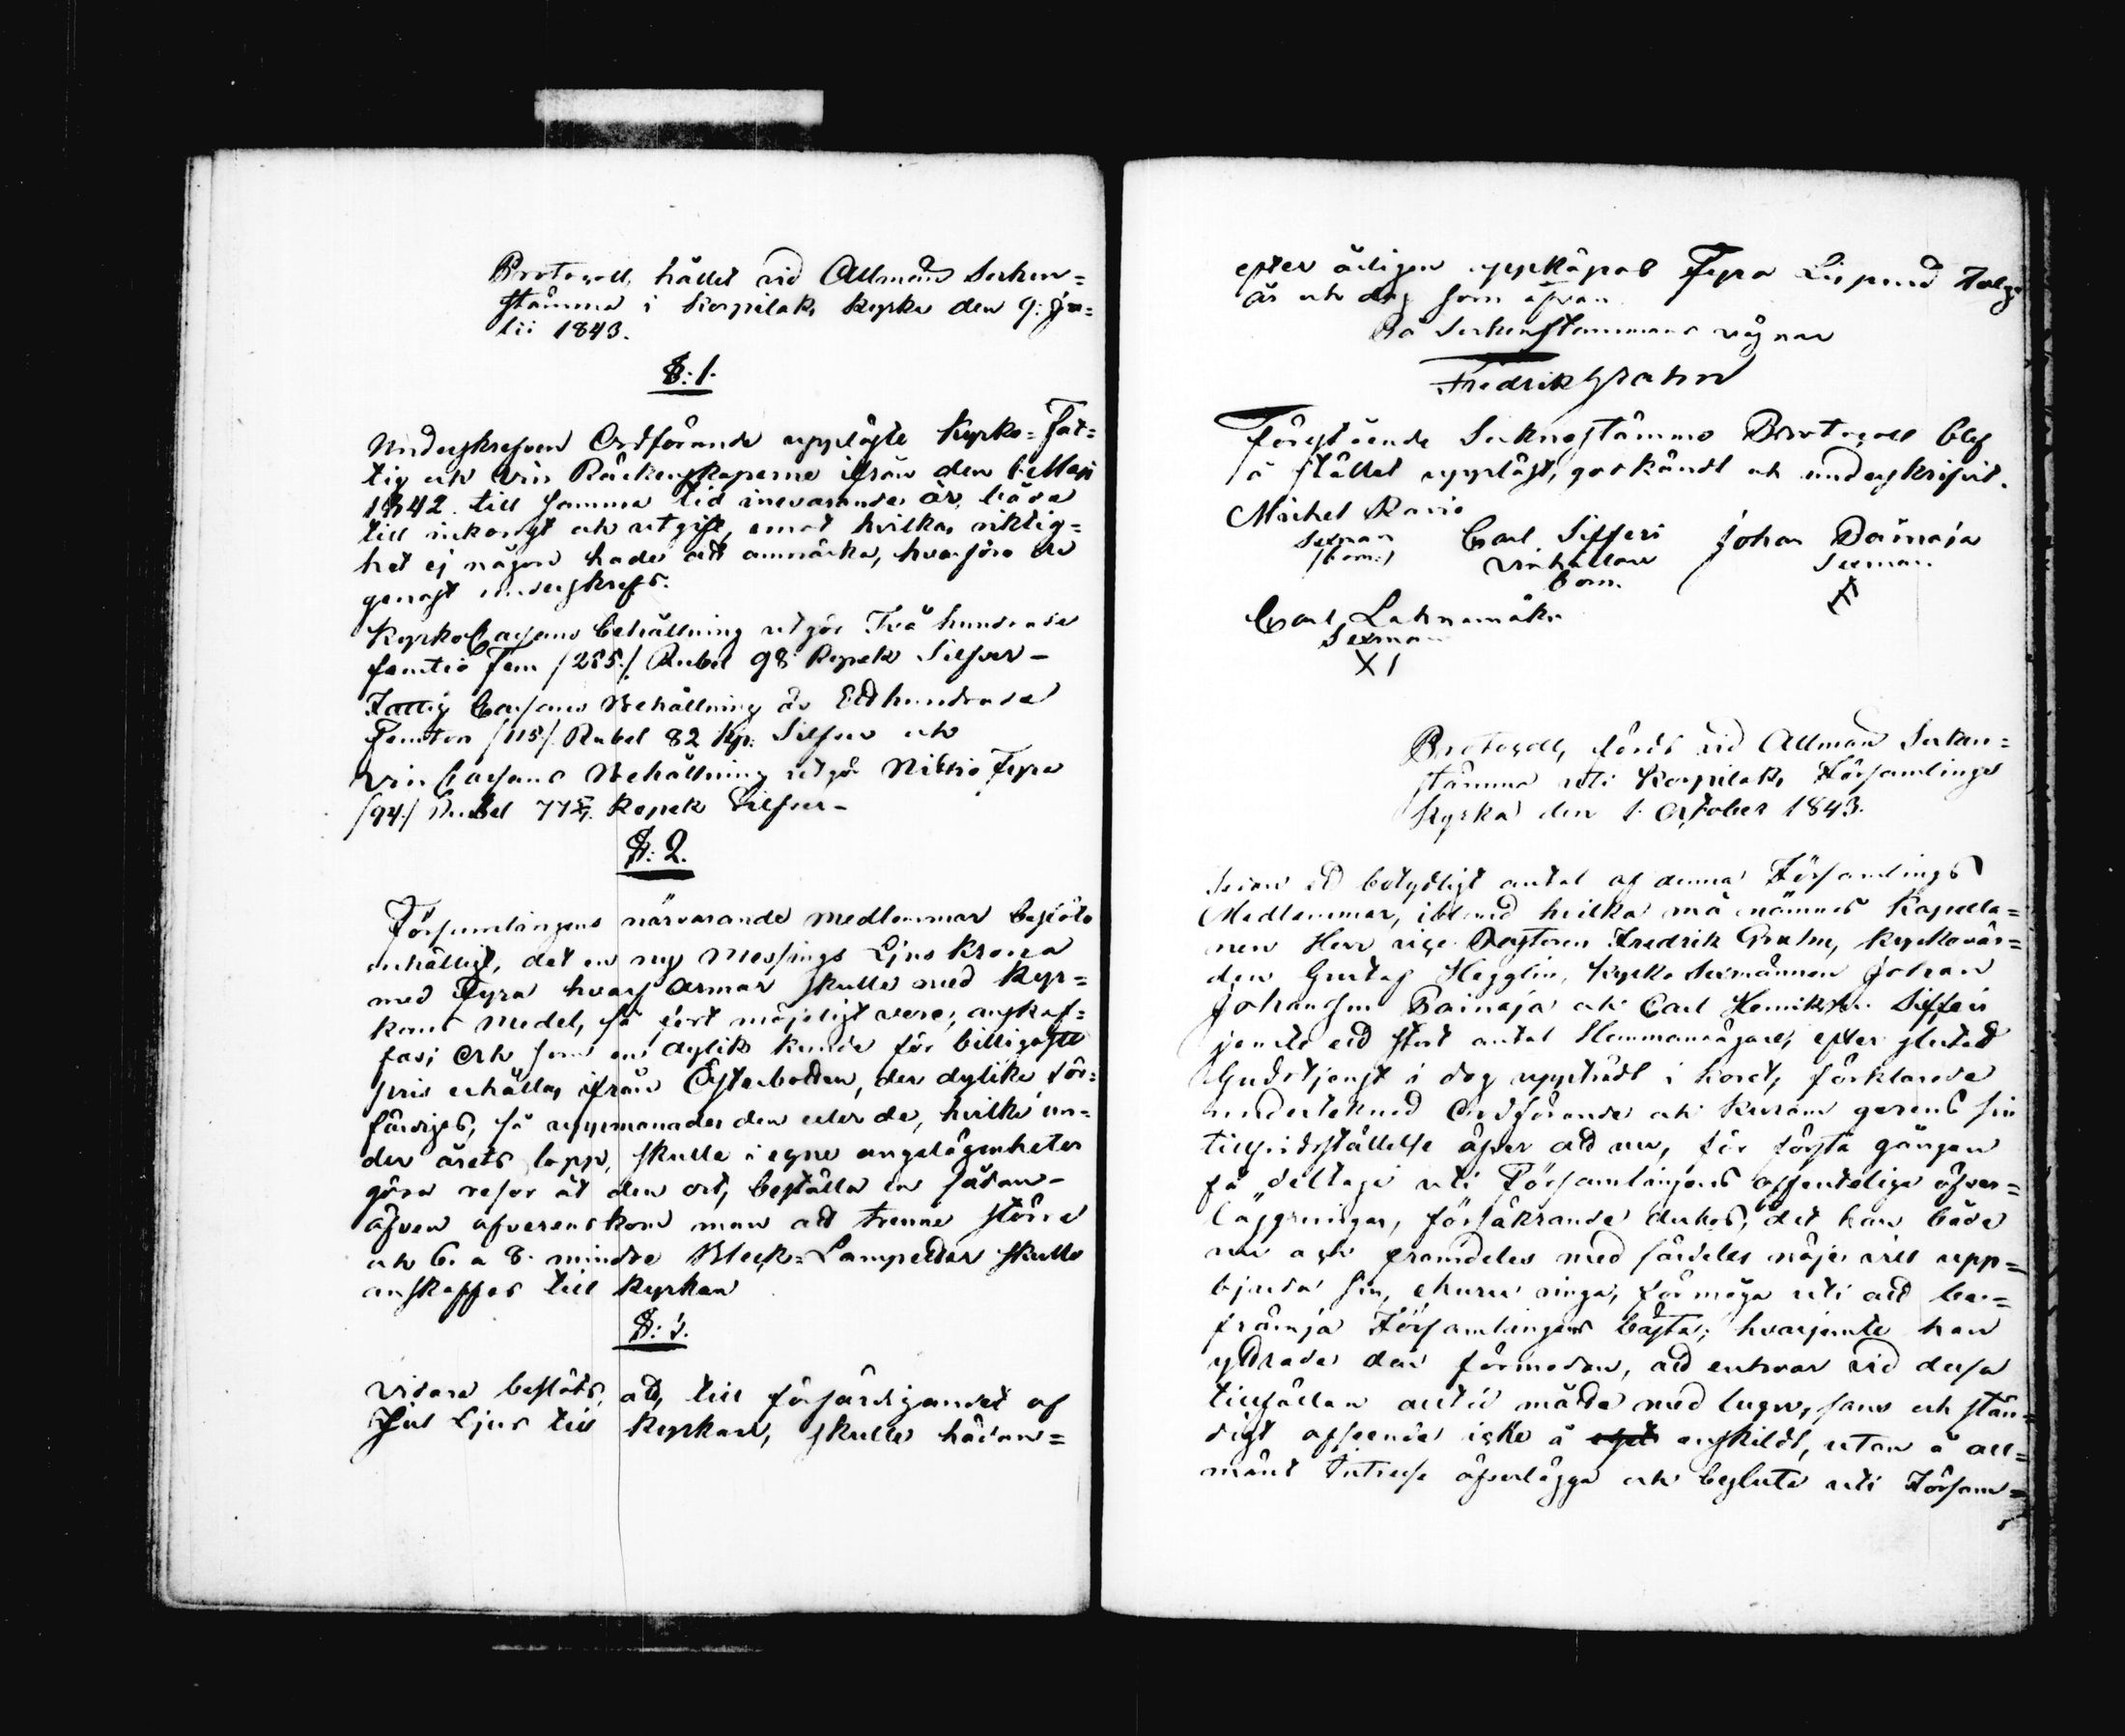 Protocoll, hållet vid Allmän Socken=
stämma i Korpilaks Kyrka den 9: Ju=
lii 1843.
§: 1.
Underskrefven Ordförande uppläste Kyrko= Fat=
tig och Vin Räkenskaperne ifrån den 1 Maji
1842. till samma tid innevarande år, båda
till inkomst och utgift, emot hvilkas riktig=
het ej någon hade att anmärka, hvarföre de
genast underskrefs.
Kyrko Cassans behållning utgör Två hundrade
femtio Fem /255./ Rubel 98 Kopek Silfver –
Fattig Cassans Behållning är Ett hundrade
Femton /115/ Rubel 82 Kp: Silfver och
Vin Cassans Behållning utgör Nittio Fyra
/94./ Rubel 77 Kopek Silfver –
§: 2.
Församlingens närvarande medlemmar beslöto
enhälligt, det en ny Messings Ljus Krona
med Fyra hvarf Armar skulle med Kyr=
kans Medel, så fort möjeligt vore, anskaf=
fas; Och som en dylik kunde för billigaste
pris erhållas ifrån Österbotten, der dylike för=
färdigas, så uppmanades den eller de, hvilke un=
der årets lopp, skulle i egne angelägenheter
göra resor åt den ort, beställa en sådan –
äfven öfverenskom man att trenne större
och 6. a 8. mindre Bleck= Lampetter skulle
anskaffas till Kyrkan
§: 3.
Vidare beslöts, att, till förfärdigandet af
Jul Ljus till Kyrkan, skulle hädan=
efter årligen uppköpas Fyra Lispund Talg.
År och dag som ofvan
På Sockenstammans vägnar
Fredrik Grahn
Föreståënde Socknestämmo Protocoll blef
å stället uppläst, godkändt och underskrifvit.
Michel Ravio
Sexman
Carl Sifferi Johan Painaja
Sexman
Carl Lahnamäki
Sexman
X
Protocoll, fördt vid Allmän Socken=
stämma uti Korpilaks Församlings
Kyrka den 1. October 1843.
Sedan ett betydligt antal af denna Församlings
Medlemmar, ibland hvilka må nämnas Kapella=
nen Herr vice Pastoren Fredrik Grahn, Kyrkovär=
den Gustaf Hegglin, Kyrko Sexmännen Johan
Johansson Painaja och Carl Henriksson Sifferi
jemte ett stort antal Hemmansägare, efter slutad
Gudstjenst i dag uppträdt i Koret, förklarade
undertecknad Ordförande och
tillfredsställelse öfver att nu, för första gången
få deltaga uti Församlingens offenteliga öfver=
läggningar, försäkrande derhos, det han både
nu och framdeles med särdeles nöje vill upp=
bjuda sin, ehuru ringa, förmåga uti att be=
främja Församlingens bästa; hvarjemte han
yttrade den förmodan, att enhvar vid dessa
tillfällen alltid måtte med lugn, sans och stän=
digt afseende icke å enskildt, utan å all=
mänt Intresse öfverlägga och besluta uti Försam=